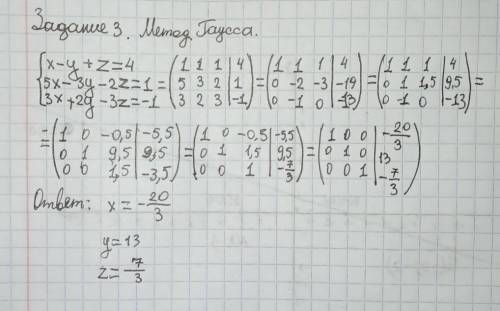 Задание 3. Метод Гаусса.
{ x-y+z=4
5x-3y-2z=1
3x+2y-3z=-1 = ( 1 1 1 | 4
5 3 2 | 1
3 2 3 | -1 ) = ( 1 1 1 | 4
0 -2 -3 | -19
0 -1 0 | -13 ) = ( 1 1 1 | 4
0 1 1,5 | 9,5
0 -1 0 | -13 ) =
= ( 1 0 -0,5 | -5,5
0 1 9,5 | 9,5
0 0 1,5 | -3,5 ) = ( 1 0 -0,5 | -5,5
0 1 1,5 | 9,5
0 0 1 | -7/3 ) = ( 1 0 0 | -20/3
0 1 0 | 13
0 0 1 | -7/3 )
Ответ: x = -20/3
y=13
z=-7/3